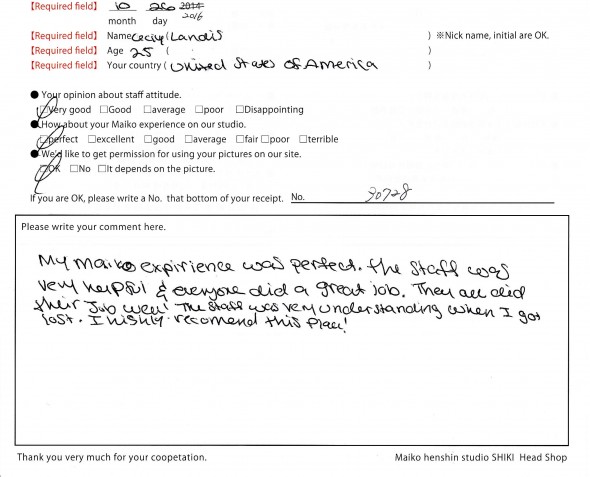 【Required field】 10 2014
2016
month day
【Required field】 Name( Landis ) ※Nick name, initial are OK.
【Required field】 Age 25 (
【Required field】 Your country ( United States of America )
● Your opinion about staff attitude.
□Very good □Good □average □poor □Disappointing
●How about your Maiko experience on our studio.
□perfect □excellent □good □average □fair □poor □terrible
●We'd like to get permission for using your pictures on our site.
□OK □No □It depends on the picture.
If you are OK, please write a No. that bottom of your receipt. No. 30728
Please write your comment here.
My maiko expirience was perfect. the staff was
very helpful & everyone did a great job. They all did
their Job well! The staff was very understanding when I got
lost. I highly recomend this place!
Thank you very much for your coopetation. Maiko henshin studio SHIKI Head Shop